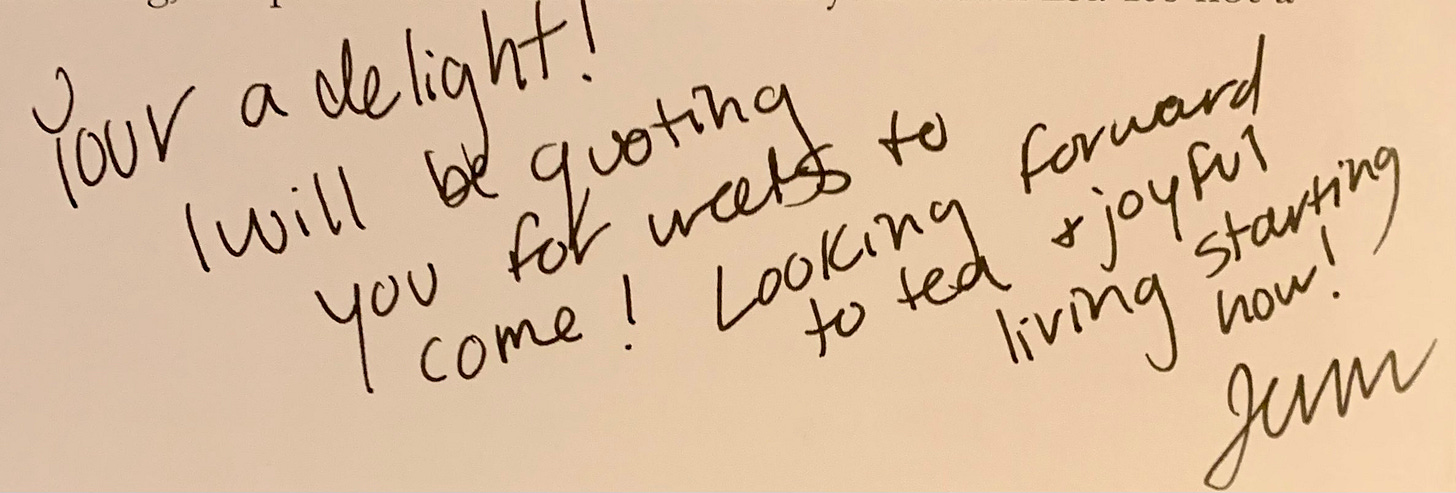 Your a delight!
I will be quoting
you for weeks to
come! Looking forward
to tea & joyful
living starting
now!
Jenn